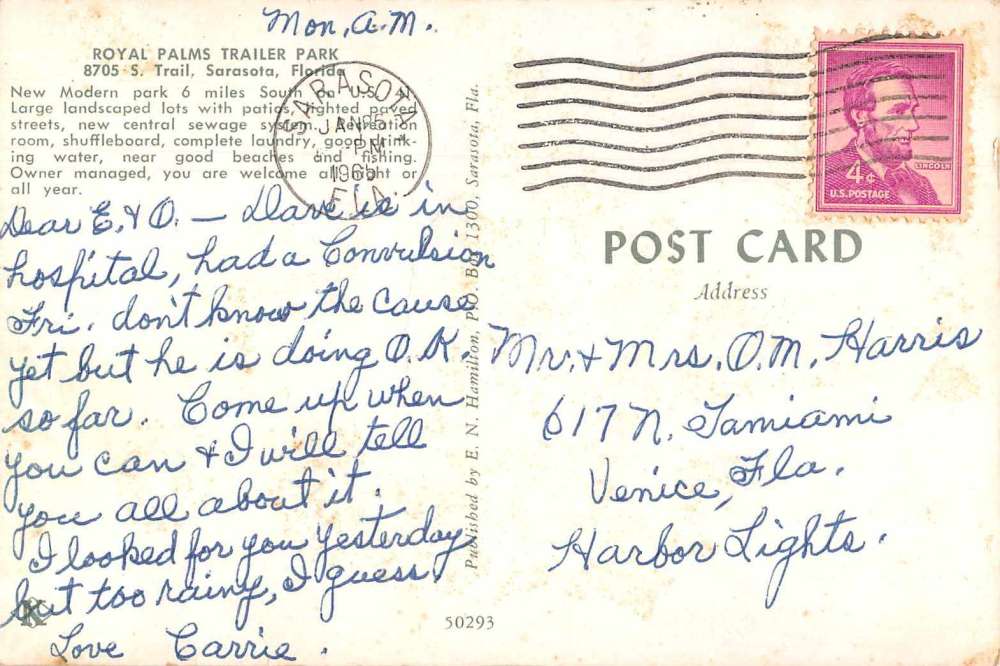 Mon, A.M.
ROYAL PALMS TRAILER PARK
8705 S. Trail, Sarasota, Florida
New Modern park 6 miles South on U.S. 41
Large landscaped lots with patios, lighted paved
streets, new central sewage system. Recreation
room, shuffleboard, complete laundry, good drink-
ing water, near good beaches and fishing.
Owner managed, you are welcome all night or
all year.
SARASOTA
JAN 25
PM
FLA.
Dear E. & O. — Dave is in
hospital, had a Convulsion
Fri. don't know the cause
yet but he is doing O.K.
so far. Come up when
you can & I will tell
you all about it.
I looked for you yesterday
but too rainy, I guess.
Love Carrie.
Published by E. N. Hamilton, P.O. Box 1300, Sarasota, Fla.
50293
LINCOLN
4¢
U.S. POSTAGE
POST CARD
Address
Mr. & Mrs. O.M. Harris
617 N. Tamiami
Venice, Fla.
Harbor Lights.